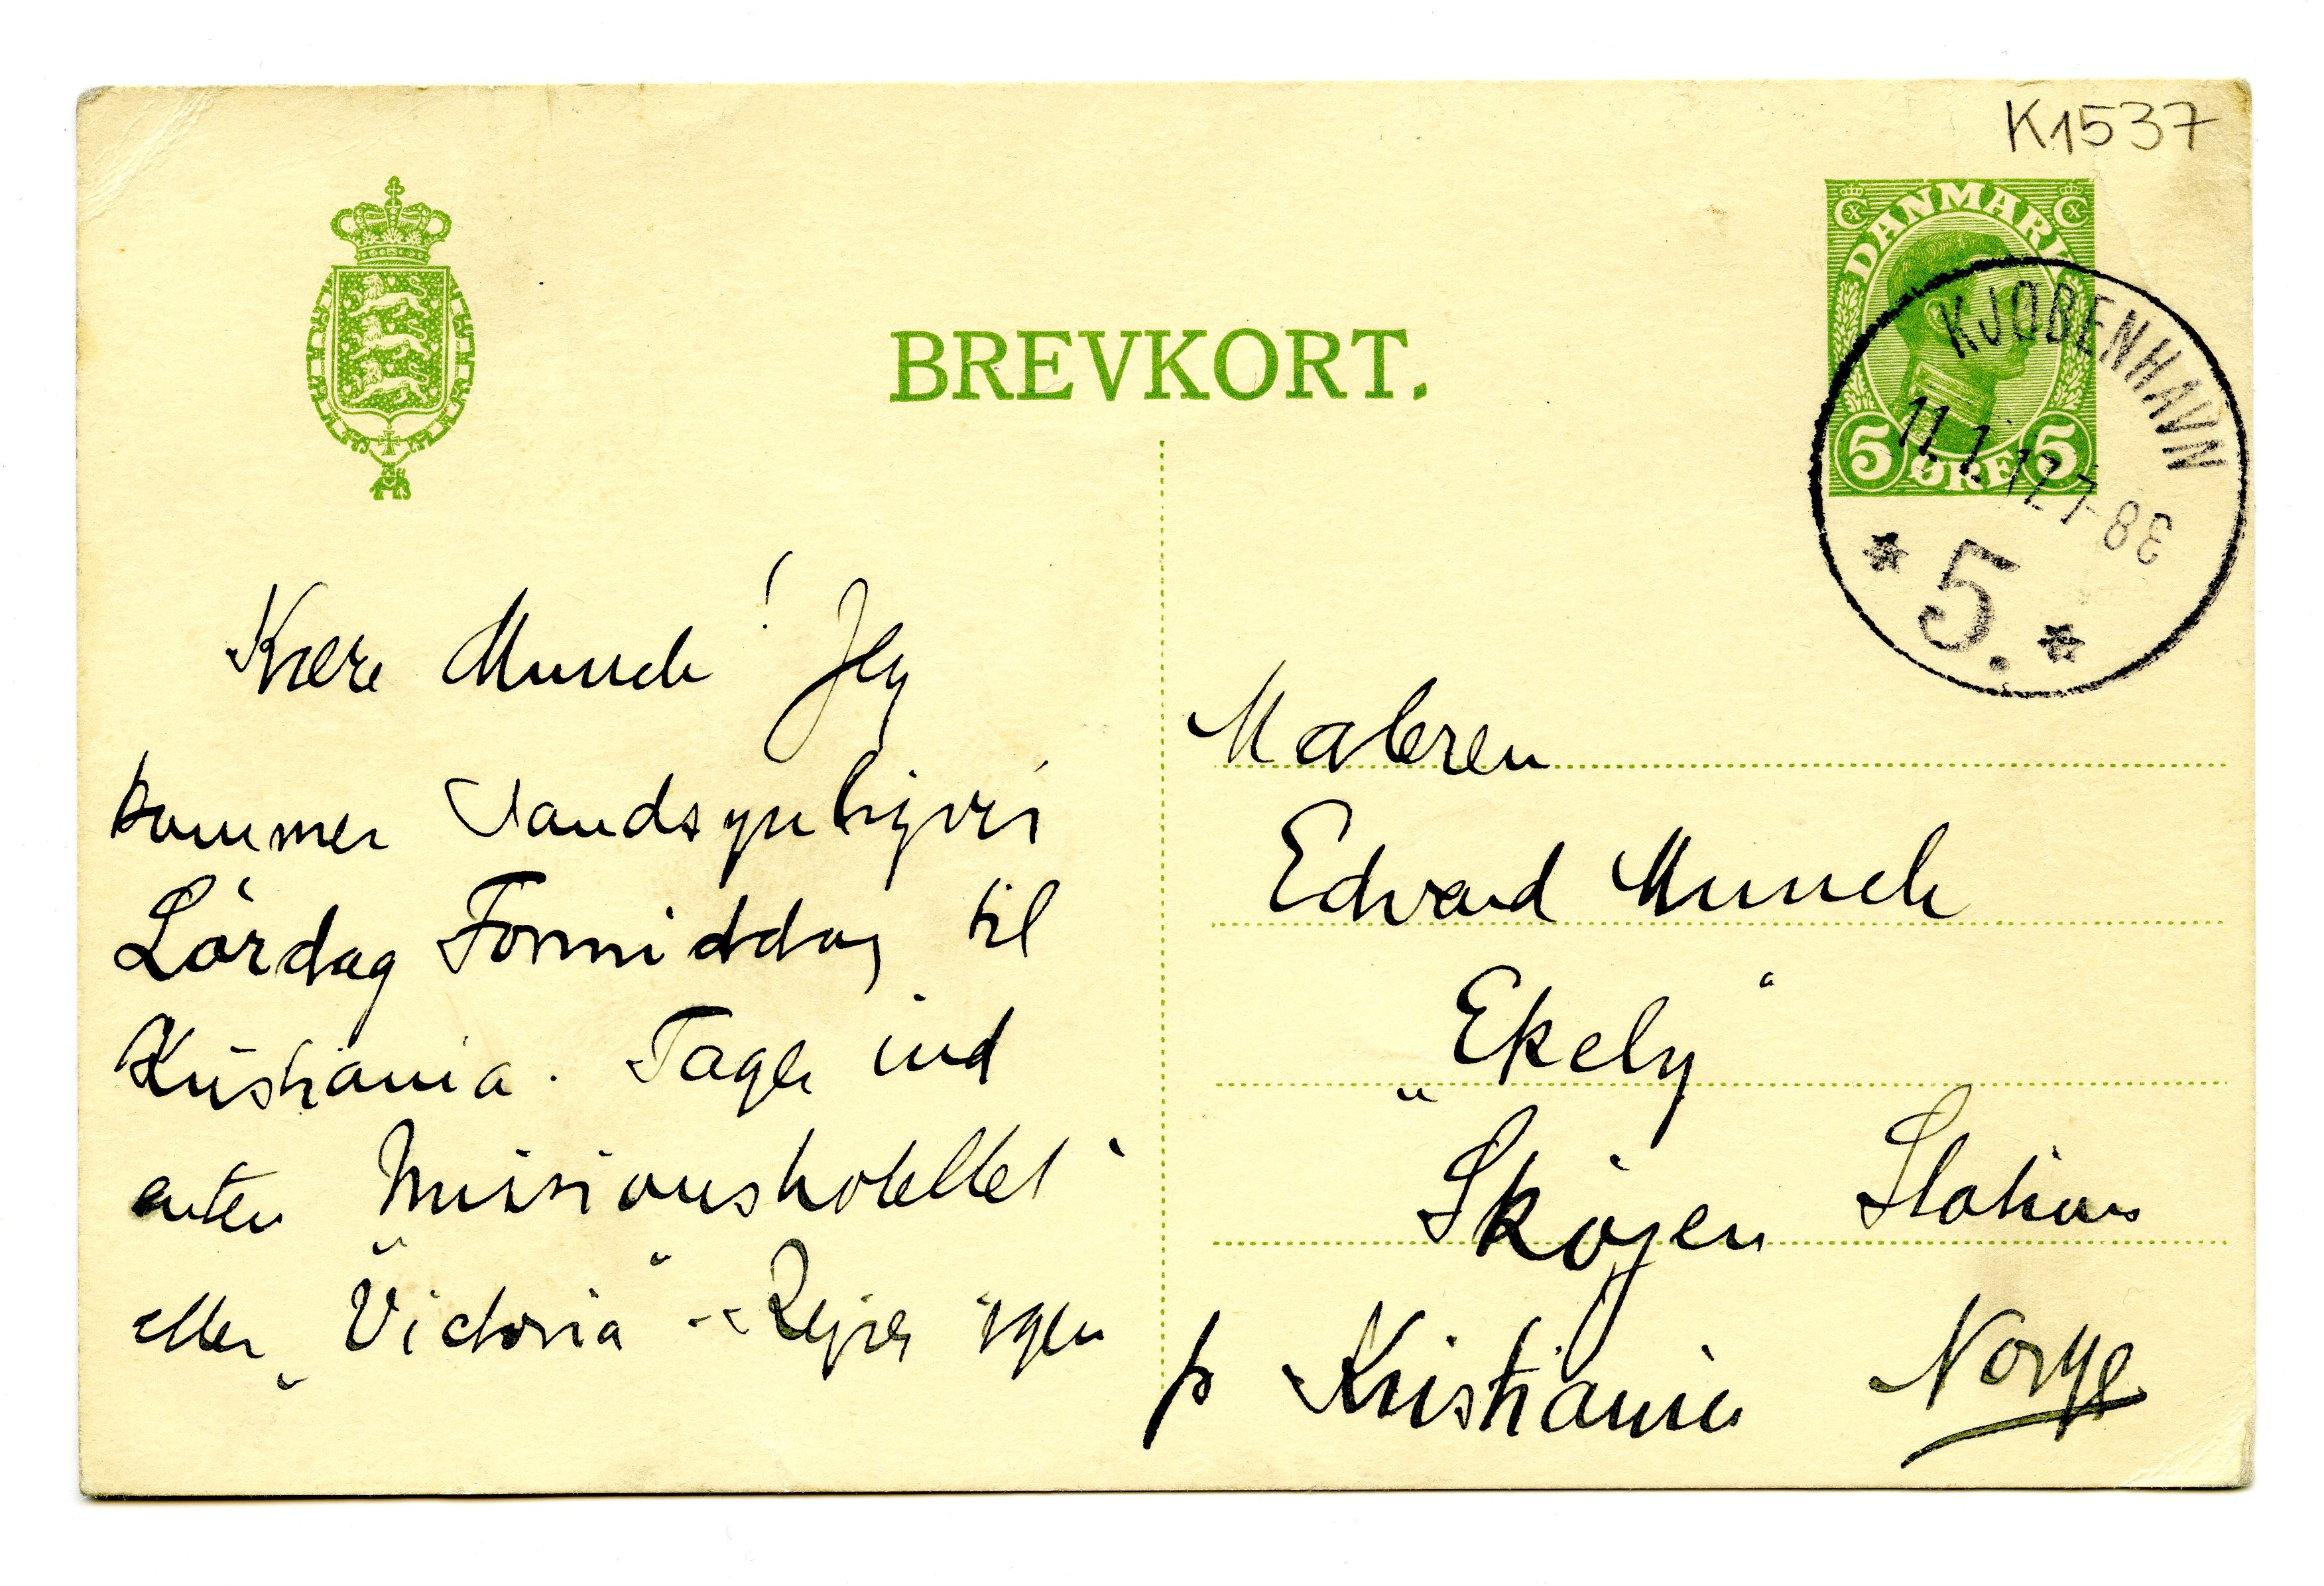 K1537
DANMARK
5 ØRE 5
KJØBENHAVN
11.1.17.7-8E
5.
BREVKORT.
Kære Munch! Jeg
kommer Sandsynligvis
Lördag Formiddag til
Kristiania. Tager ind
enten „Missionshotellet"
eller „Victoria" - Rejser igen
Maleren
Edvard Munch
„Ekely"
Sköjen Station
p Kristiania Norge